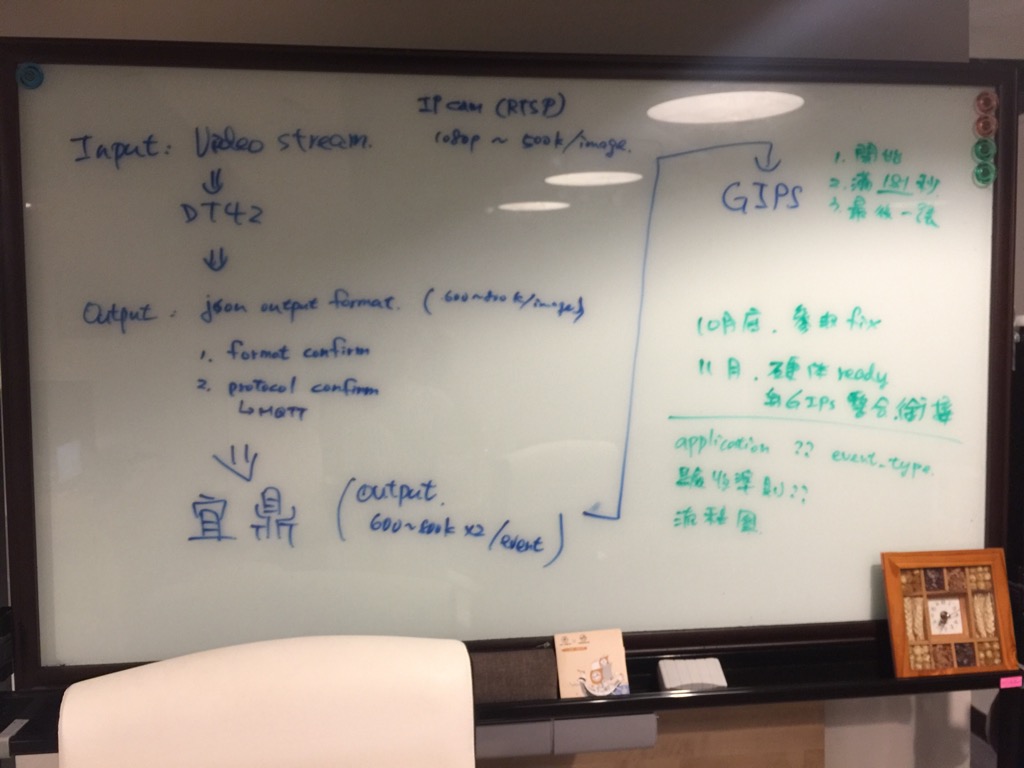 IP cam (RTSP)
1080p ~ 500k/image.
Input: Video stream.
⇓
DT42
⇓
Output: json output format. (600~800k/image)
1. format confirm
2. protocol confirm
↳ MQTT
⇓
宜鼎 (output.
600~800k x2/event)
GIPS
1. 開始
2. 滿 秒
3. 最後一張
10月底. 參數 fix
11月. 硬体 ready
與GIPS 整合.銜接
application ?? event_type.
驗收準則??
流程圖